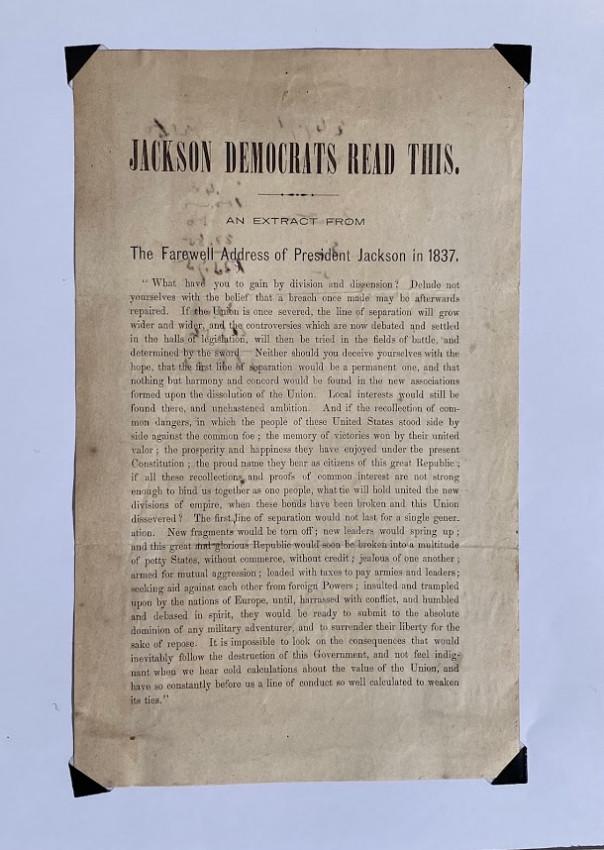 JACKSON DEMOCRATS READ THIS.
AN EXTRACT FROM
The Farewell Address of President Jackson in 1837.
" What have you to gain by division and dissension? Delude not
yourselves with the belief that a breach once made may be afterwards
repaired. If the Union is once severed, the line of separation will grow
wider and wider, and the controversies which are now debated and settled
in the halls of legislation, will then be tried in the fields of battle, and
determined by the sword Neither should you deceive yourselves with the
hope, that the first line of separation would be a permanent one, and that
nothing but harmony and concord would be found in the new associations
formed upon the dissolution of the Union. Local interests would still be
found there, and unchastened ambition. And if the recollection of com-
mon dangers, in which the people of these United States stood side by
side against the common foe; the memory of victories won by their united
valor; the prosperity and happiness they have enjoyed under the present
Constitution; the proud name they bear as citizens of this great Republic;
if all these recollections and proofs of common interest are not strong
enough to bind us together as one people, what tie will hold united the new
divisions of empire, when these bonds have been broken and this Union
dissevered? The first line of separation would not last for a single gener-
ation. New fragments would be torn off; new leaders would spring up;
and this great and glorious Republic would soon be broken into a multitude
of petty States, without commerce, without credit; jealous of one another;
armed for mutual aggression; loaded with taxes to pay armies and leaders;
seeking aid against each other from foreign Powers; insulted and trampled
upon by the nations of Europe, until, harrassed with conflict, and humbled
and debased in spirit, they would be ready to submit to the absolute
dominion of any military adventurer, and to surrender their liberty for the
sake of repose. It is impossible to look on the consequences that would
inevitably follow the destruction of this Government, and not feel indig-
nant when we hear cold calculations about the value of the Union, and
have so constantly before us a line of conduct so well calculated to weaken
its ties."